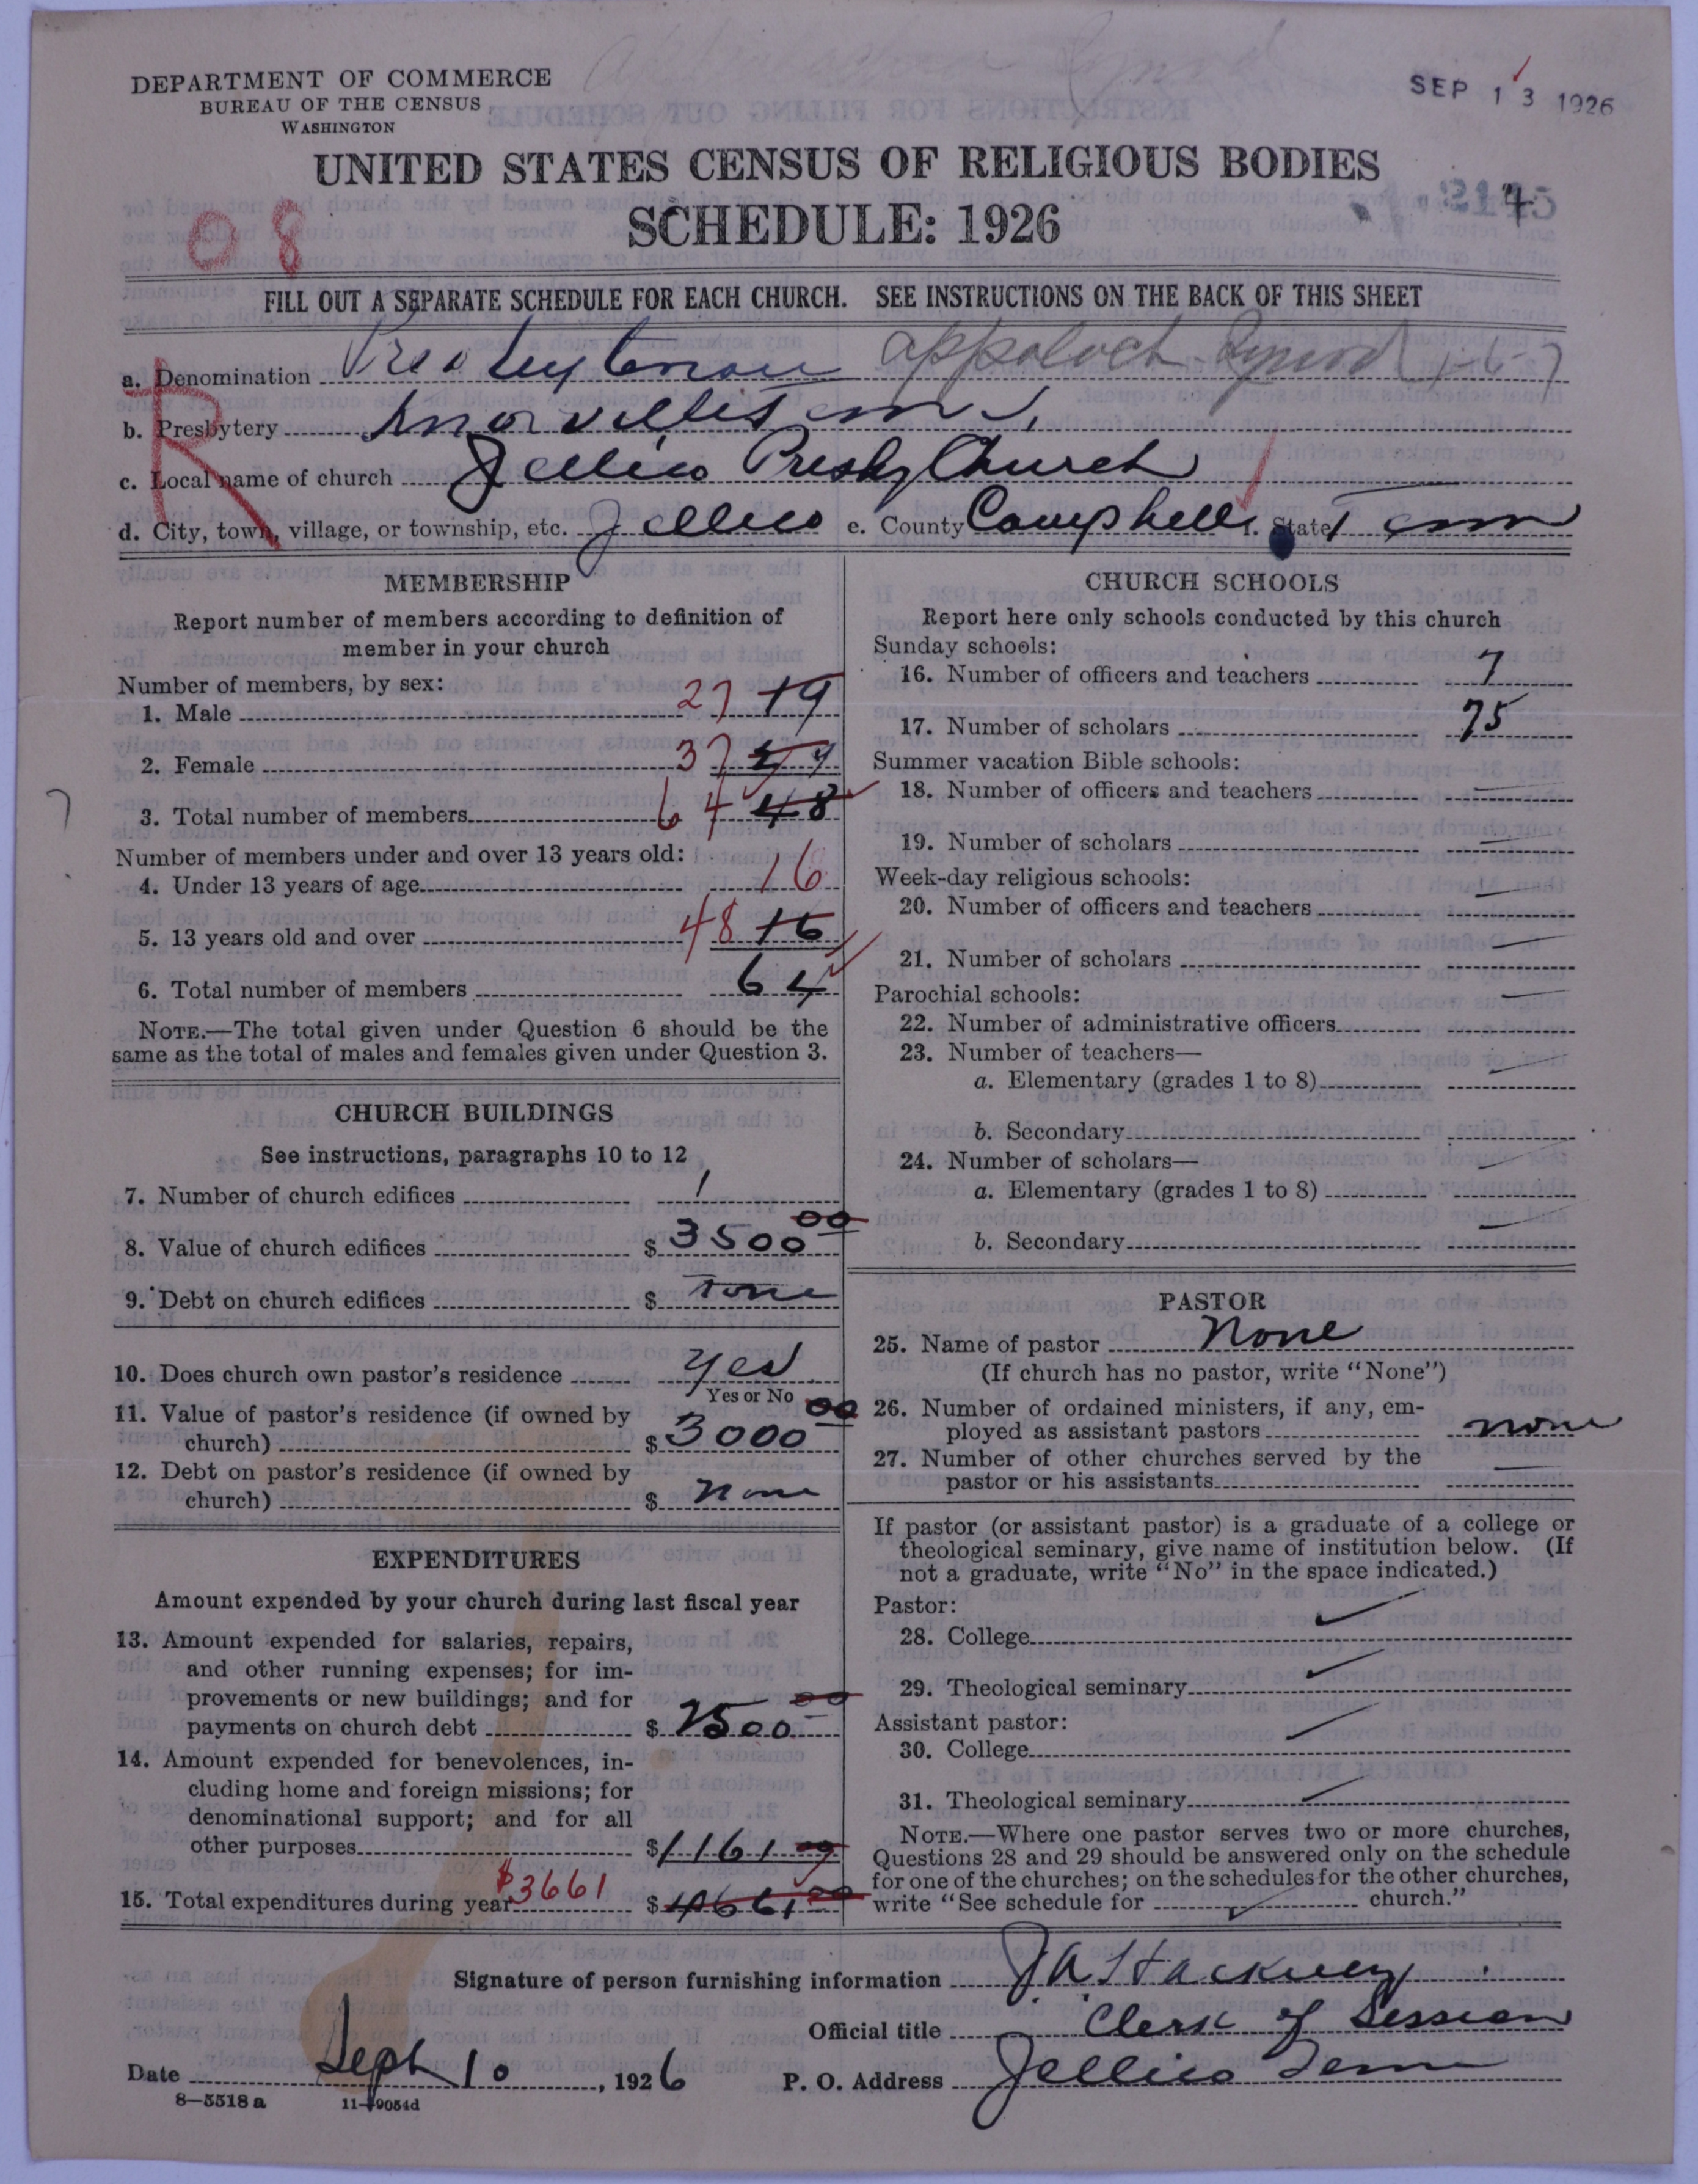 DEPARTMENT OF COMMERCE
BUREAU OF THE CENSUS
WASHINGTON
SEP 13 1926
UNITED STATES CENSUS OF RELIGIOUS BODIES
SCHEDULE: 1926
08
FILL OUT A SEPARATE SCHEDULE FOR EACH CHURCH. SEE INSTRUCTIONS ON THE BACK OF THIS SHEET
R
a. Denomination Presbyterian Appalach. Synod
b. Presbytery Knoxville Tenn
c. Local name of church Jellico Presby Church
d. City, town, village, or township, etc. Jellico e. County Campbell f. State Tenn
MEMBERSHIP
Report number of members according to definition of
member in your church
Number of members, by sex:
1. Male 27 19
2. Female 37
3. Total number of members 64 48
Number of members under and over 13 years old:
4. Under 13 years of age 16
5. 13 years old and over 48 16
6. Total number of members 64
NOTE.—The total given under Question 6 should be the
same as the total of males and females given under Question 3.
CHURCH BUILDINGS
See instructions, paragraphs 10 to 12
7. Number of church edifices 1
8. Value of church edifices $ 3500 00
9. Debt on church edifices $ None
10. Does church own pastor's residence Yes
Yes or No
11. Value of pastor's residence (if owned by
church) $ 3000 00
12. Debt on pastor's residence (if owned by
church) $ None
EXPENDITURES
Amount expended by your church during last fiscal year
13. Amount expended for salaries, repairs,
and other running expenses; for im-
provements or new buildings; and for
payments on church debt $ 2500 00
14. Amount expended for benevolences, in-
cluding home and foreign missions; for
denominational support; and for all
other purposes $ 1161
15. Total expenditures during year $3661 $
CHURCH SCHOOLS
Report here only schools conducted by this church
Sunday schools:
16. Number of officers and teachers 7
17. Number of scholars 75
Summer vacation Bible schools:
18. Number of officers and teachers —
19. Number of scholars —
Week-day religious schools:
20. Number of officers and teachers —
21. Number of scholars —
Parochial schools:
22. Number of administrative officers —
23. Number of teachers—
a. Elementary (grades 1 to 8) —
b. Secondary
24. Number of scholars—
a. Elementary (grades 1 to 8) —
b. Secondary —
PASTOR
25. Name of pastor None
(If church has no pastor, write "None")
26. Number of ordained ministers, if any, em-
ployed as assistant pastors none
27. Number of other churches served by the
pastor or his assistants —
If pastor (or assistant pastor) is a graduate of a college or
theological seminary, give name of institution below. (If
not a graduate, write "No" in the space indicated.)
Pastor:
28. College
29. Theological seminary
Assistant pastor:
30. College
31. Theological seminary
NOTE.—Where one pastor serves two or more churches,
Questions 28 and 29 should be answered only on the schedule
for one of the churches; on the schedules for the other churches,
write "See schedule for church."
Signature of person furnishing information J A Hackney
Official title Clerk of Session
Date Sept 10, 1926 P. O. Address Jellico Tenn
8—5518 a 11—9054d